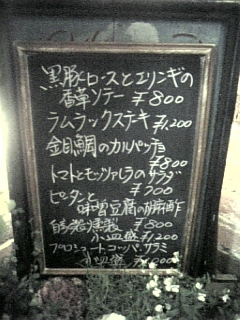 黒豚ロースとエリンギの
香草ソテー ¥800
ラムラックステーキ ¥1,200
金目鯛のカルパッチョ
¥800
トマトとモッツァレラのサラダ
¥700
ピータンと
味噌豆腐の胡麻酢
自家製燻製 ¥800
小皿盛 ¥1,200
プロシュートコッパ・サラミ
小皿盛 ¥1,000